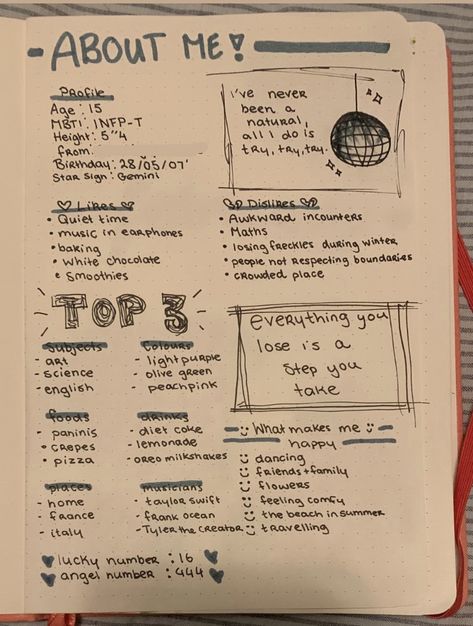 ABOUT ME!
Profile
Age : 15
MBTI : INFP-T
Height: 5"4
From:
Birthday: 28/05/07'
Star sign: Gemini
i've never
been a
natural,
all I do is
try, try, try.
Likes
• Quiet time
• music in earphones
• baking
• white chocolate
• smoothies
Dislikes
• Awkward incounters
• Maths
• losing freckles during winter
• people not respecting boundaries
• crowded place
TOP 3
Subjects
- art
- science
- english
Colours
- light purple
- olive green
- peachpink
foods
- paninis
• crepes
• pizza
drinks
- diet coke
- lemonade
- oreo milkshakes
places
- home
- france
- italy
musicians
- taylor swift
- frank ocean
- Tyler the creator
everything you
lose is a
step you
take
What makes me
happy
dancing
friends+family
flowers
feeling comfy
the beach in summer
travelling
lucky number : 16
angel number : 444